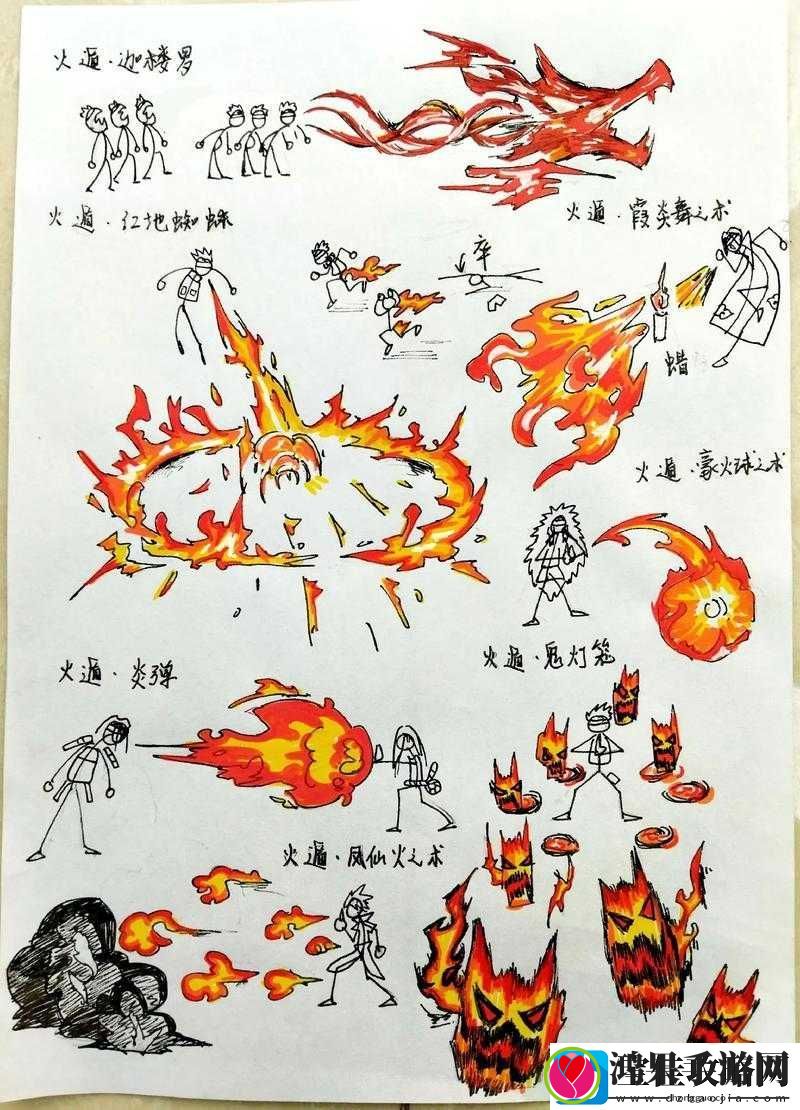 火遁·迦楼罗
火遁·红地蜘蛛
火遁·霞炎舞之术
卒
蜡
火遁·豪火球之术
火遁·炎弹
火遁·鬼灯笼
火遁·凤仙火之术
鸿娃攻游网
www.dzbaojia.com